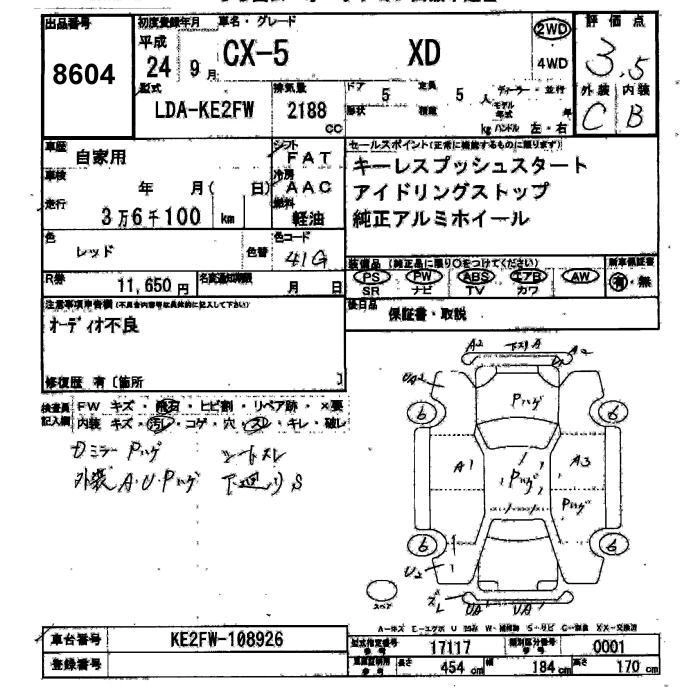 出品番号
8604
初度登録年月
平成
24 9月
車名・グレード
CX-5 XD
2WD
4WD
評価点
3.5
外装 内装
C B
型式
LDA-KE2FW
排気量
2188 cc
ドア 5
定員 5 人
形状
積載 kg
ディーラー・並行
モデル年式 年
ハンドル 左・右
車歴
自家用
シフト
FAT
車検
年 月( 日)
冷房
AAC
走行
3万6千100 km
燃料
軽油
色
レッド
色替
色コード
41G
R券
11,650 円
名変通知期限
月 日
セールスポイント(正常に機能するものに限ります)
キーレスプッシュスタート
アイドリングストップ
純正アルミホイール
装備品(純正品に限り○をつけてください)
新車保証書
PS PW ABS エアB AW
有・無
SR ナビ TV カワ
後日品
保証書・取説
注意事項申告欄(不具合内容等は具体的に記入して下さい)
オーディオ不良
修復歴 有〔箇所 〕
検査員記入欄
FW キズ・飛石・ヒビ割・リペア跡・×要
内装 キズ・汚レ・コゲ・穴・スレ・キレ・破レ
Dミラー Pハゲ シートスレ
外装 A・U・Pハゲ 下廻りS
A2 下スリA A2
U2
UA2
Pハゲ
6 6
A1 Pハゲ A3
Pハゲ
6 6
U2
ズレ
UA UA
スペア
A-キズ E-エクボ U-凹み W-補修跡 S-サビ C-腐食 XX-交換済
車台番号
KE2FW-108926
登録番号
型式指定番号
17117
類別区分番号
0001
長さ 454 cm
幅 184 cm
高さ 170 cm